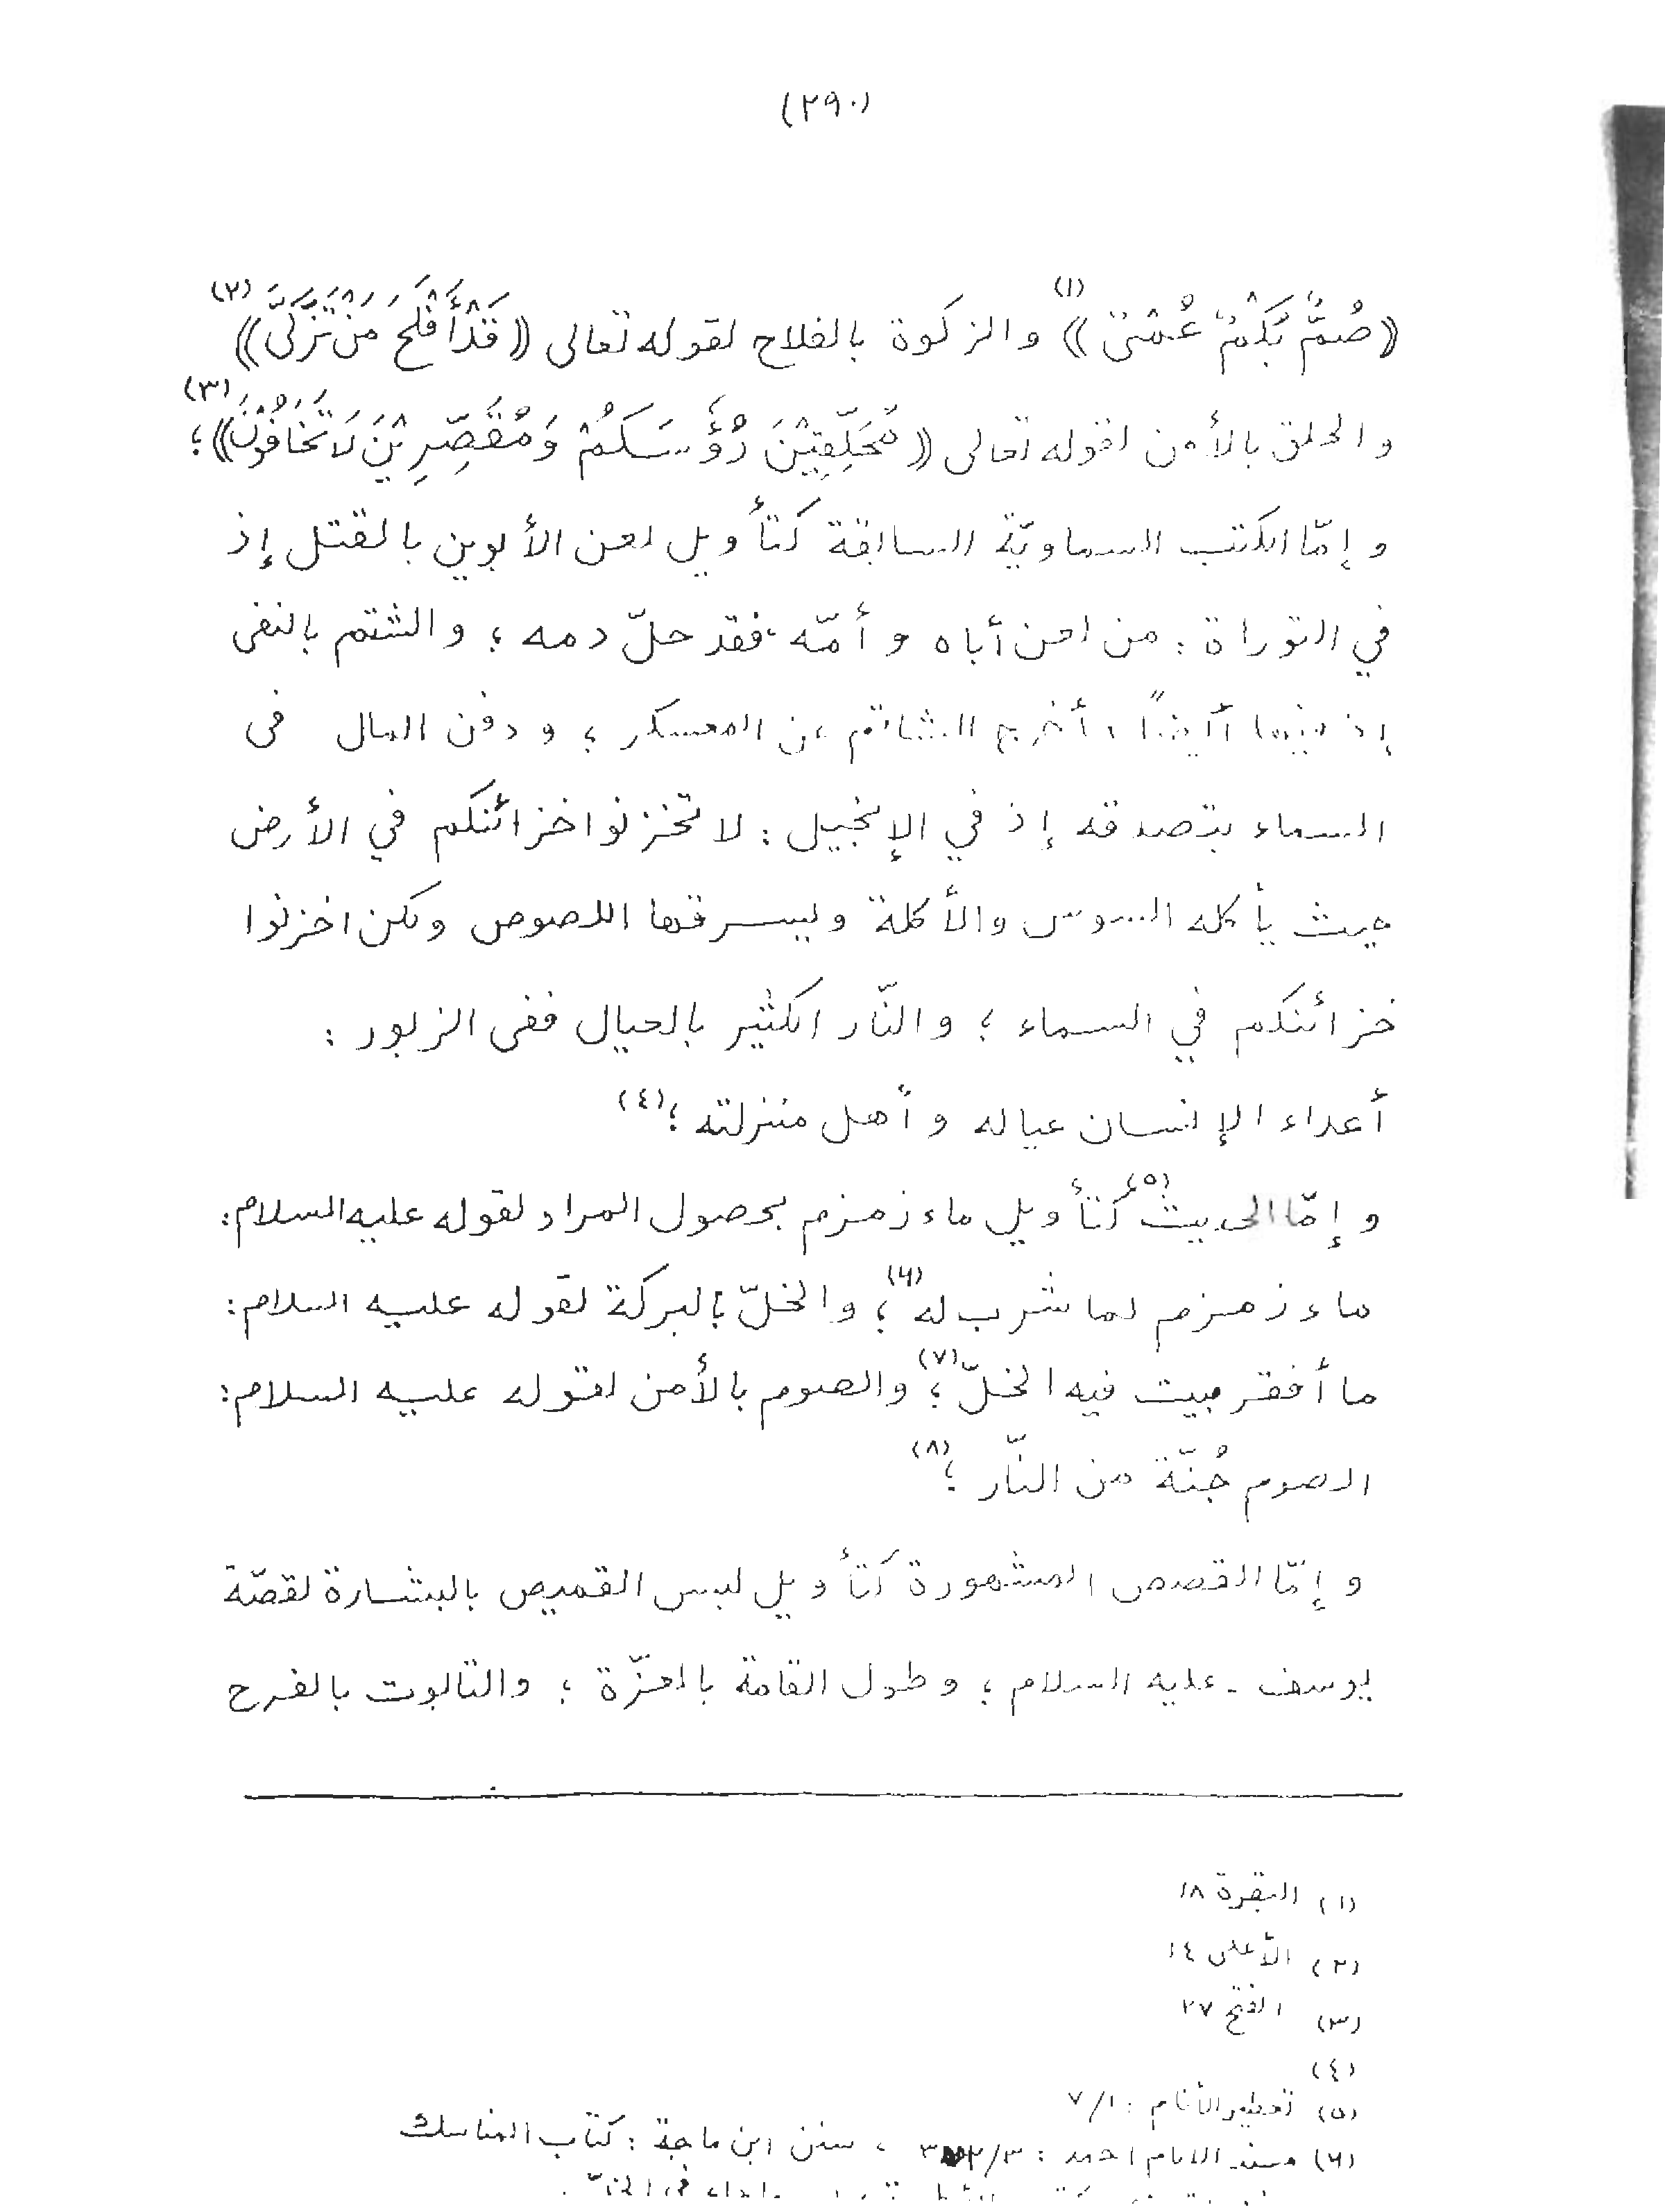 (٢٩٠)
((صُمٌّ بُكْمٌ عُمْىٌ)) (١) والزكوة بالفلاح لقوله تعالى ((قَدْ أَفْلَحَ مَنْ تَزَكَّىٰ)) (٢)
والحلق بالأمن لقوله تعالى ((مُحَلِّقِيْنَ رُؤُسَكُمْ وَمُقَصِّرِيْنَ لَا تَخَافُوْنَ)) (٣) ؛
و إمّا الكتب السماويّة السابقة كتأويل لعن الأبوين بالقتل إذ
في التوراة : من لعن أباه و أمّه فقد حلّ دمه ؛ والشتم بالنفى
إذ فيها أيضًا : أخرج الشاتم عن المعسكر ؛ و دفن المال فى
السماء بتصدقه إذ في الإنجيل : لا تخزنوا خزائنكم في الأرض
حيث يأكله السوس والأكلة ويسرقها اللصوص ولكن اخزنوا
خزائنكم في السماء ؛ والنّار الكثير بالعيال ففى الزبور :
أعداء الإنسان عياله و أهل منزلته ؛ (٤)
و إمّا الحديث (٥) كتأويل ماء زمزم بحصول المراد لقوله عليه السلام :
ماء زمزم لما شرب له (٦) ؛ والخلّ بالبركة لقوله عليه السلام :
ما أفقر بيت فيه الخلّ (٧) ؛ والصوم بالأمن لقوله عليه السلام :
الصوم جُنّة من النّار ؛ (٨)
و إمّا القصص المشهورة كتأويل لبس القميص بالبشارة لقصّة
يوسف - عليه السلام ؛ وطول القامة بالعزّة ؛ والتابوت بالفرح
(١) البقرة ١٨
(٢) الأعلى ١٤
(٣) الفتح ٢٧
(٤)
(٥) تعطير الأنام : ٧/١
(٦) مسند الامام احمد : ، سنن ابن ماجة : كتاب المناسك